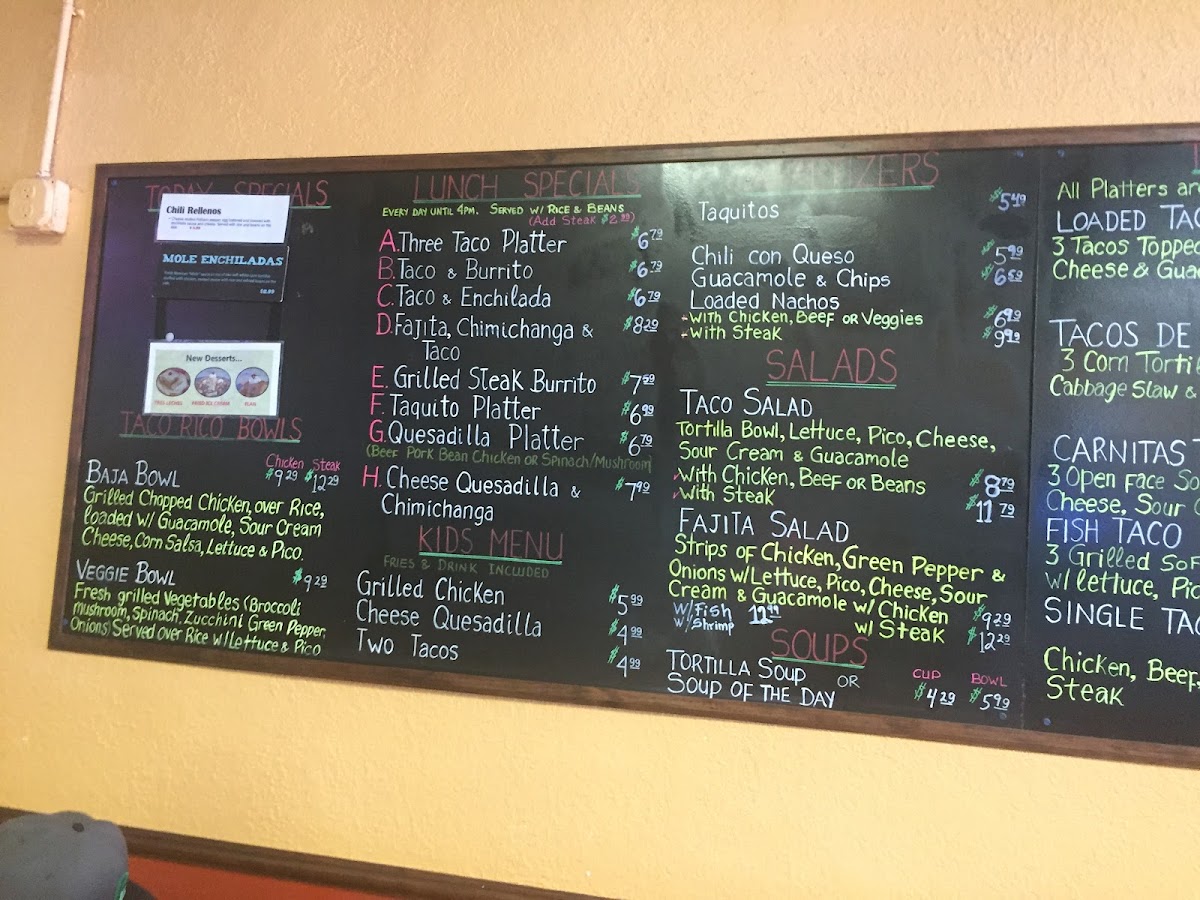 TODAY SPECIALS
Chili Rellenos
MOLE ENCHILADAS
$8.99
New Desserts...
TACO RICO BOWLS
Chicken Steak
BAJA BOWL $9.29 $12.29
Grilled Chopped Chicken, over Rice,
loaded w/ Guacamole, Sour Cream
Cheese, Corn Salsa, Lettuce & Pico.
VEGGIE BOWL $9.29
Fresh grilled Vegetables (Broccoli
mushroom, Spinach, Zucchini Green Pepper,
Onions) Served over Rice w/ Lettuce & Pico
LUNCH SPECIALS
EVERY DAY UNTIL 4PM. SERVED W/ RICE & BEANS
(Add Steak $2.99)
A. Three Taco Platter $6.79
B. Taco & Burrito $6.79
C. Taco & Enchilada $6.79
D. Fajita, Chimichanga & $8.29
Taco
E. Grilled Steak Burrito $7.59
F. Taquito Platter $6.99
G. Quesadilla Platter $6.79
(Beef Pork Bean Chicken or Spinach/Mushroom)
H. Cheese Quesadilla & $7.99
Chimichanga
KIDS MENU
FRIES & DRINK INCLUDED
Grilled Chicken $5.99
Cheese Quesadilla $4.99
Two Tacos $4.99
Taquitos $5.49
Chili con Queso $5.99
Guacamole & Chips $6.59
Loaded Nachos
-With Chicken, Beef or Veggies $6.49
-With Steak $9.99
SALADS
TACO SALAD
Tortilla Bowl, Lettuce, Pico, Cheese,
Sour Cream & Guacamole
With Chicken, Beef or Beans $8.79
With Steak $11.79
FAJITA SALAD
Strips of Chicken, Green Pepper &
Onions w/ Lettuce, Pico, Cheese, Sour
Cream & Guacamole w/ Chicken $9.29
w/ Fish 12.99
w/ Shrimp
w/ Steak $12.29
SOUPS
TORTILLA SOUP OR CUP BOWL
SOUP OF THE DAY $4.29 $5.99
All Platters
LOADED
3 Tacos Topped
Cheese &
TACOS DE
3 Corn
Cabbage Slaw &
CARNITAS
3 Open Face
Cheese, Sour
FISH TACO
3 Grilled
w/ lettuce,
SINGLE
Chicken, Beef,
Steak